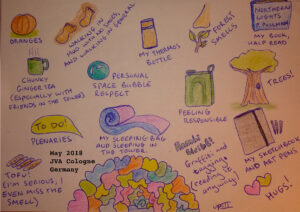 ORANGES
WALKING IN
MUD WITH NO SHOES,
AND WALKING IN GENERAL
MY THERMOS
BOTTLE
FOREST
SMELLS
NORTHERN
LIGHTS
P. PULLMAN
MY BOOK,
HALF READ
CHUNKY
GINGER TEA
(ESPECIALLY WITH
FRIENDS IN THE TOWER)
PERSONAL
SPACE BUBBLE
RESPECT
FEELING
RESPONSIBLE
TREES!
TO DO!
PLENARIES
MY SLEEPING BAG
AND SLEEPING IN
THE TOWER.
Graffiti and
tagging
(reading
anything)
MY SKETCHBOOK
AND ART PENS
TOFU!
(I'M SERIOUS, I
EVEN MISS THE
SMELL)
May 2018
JVA Cologne
Germany
HUGS!